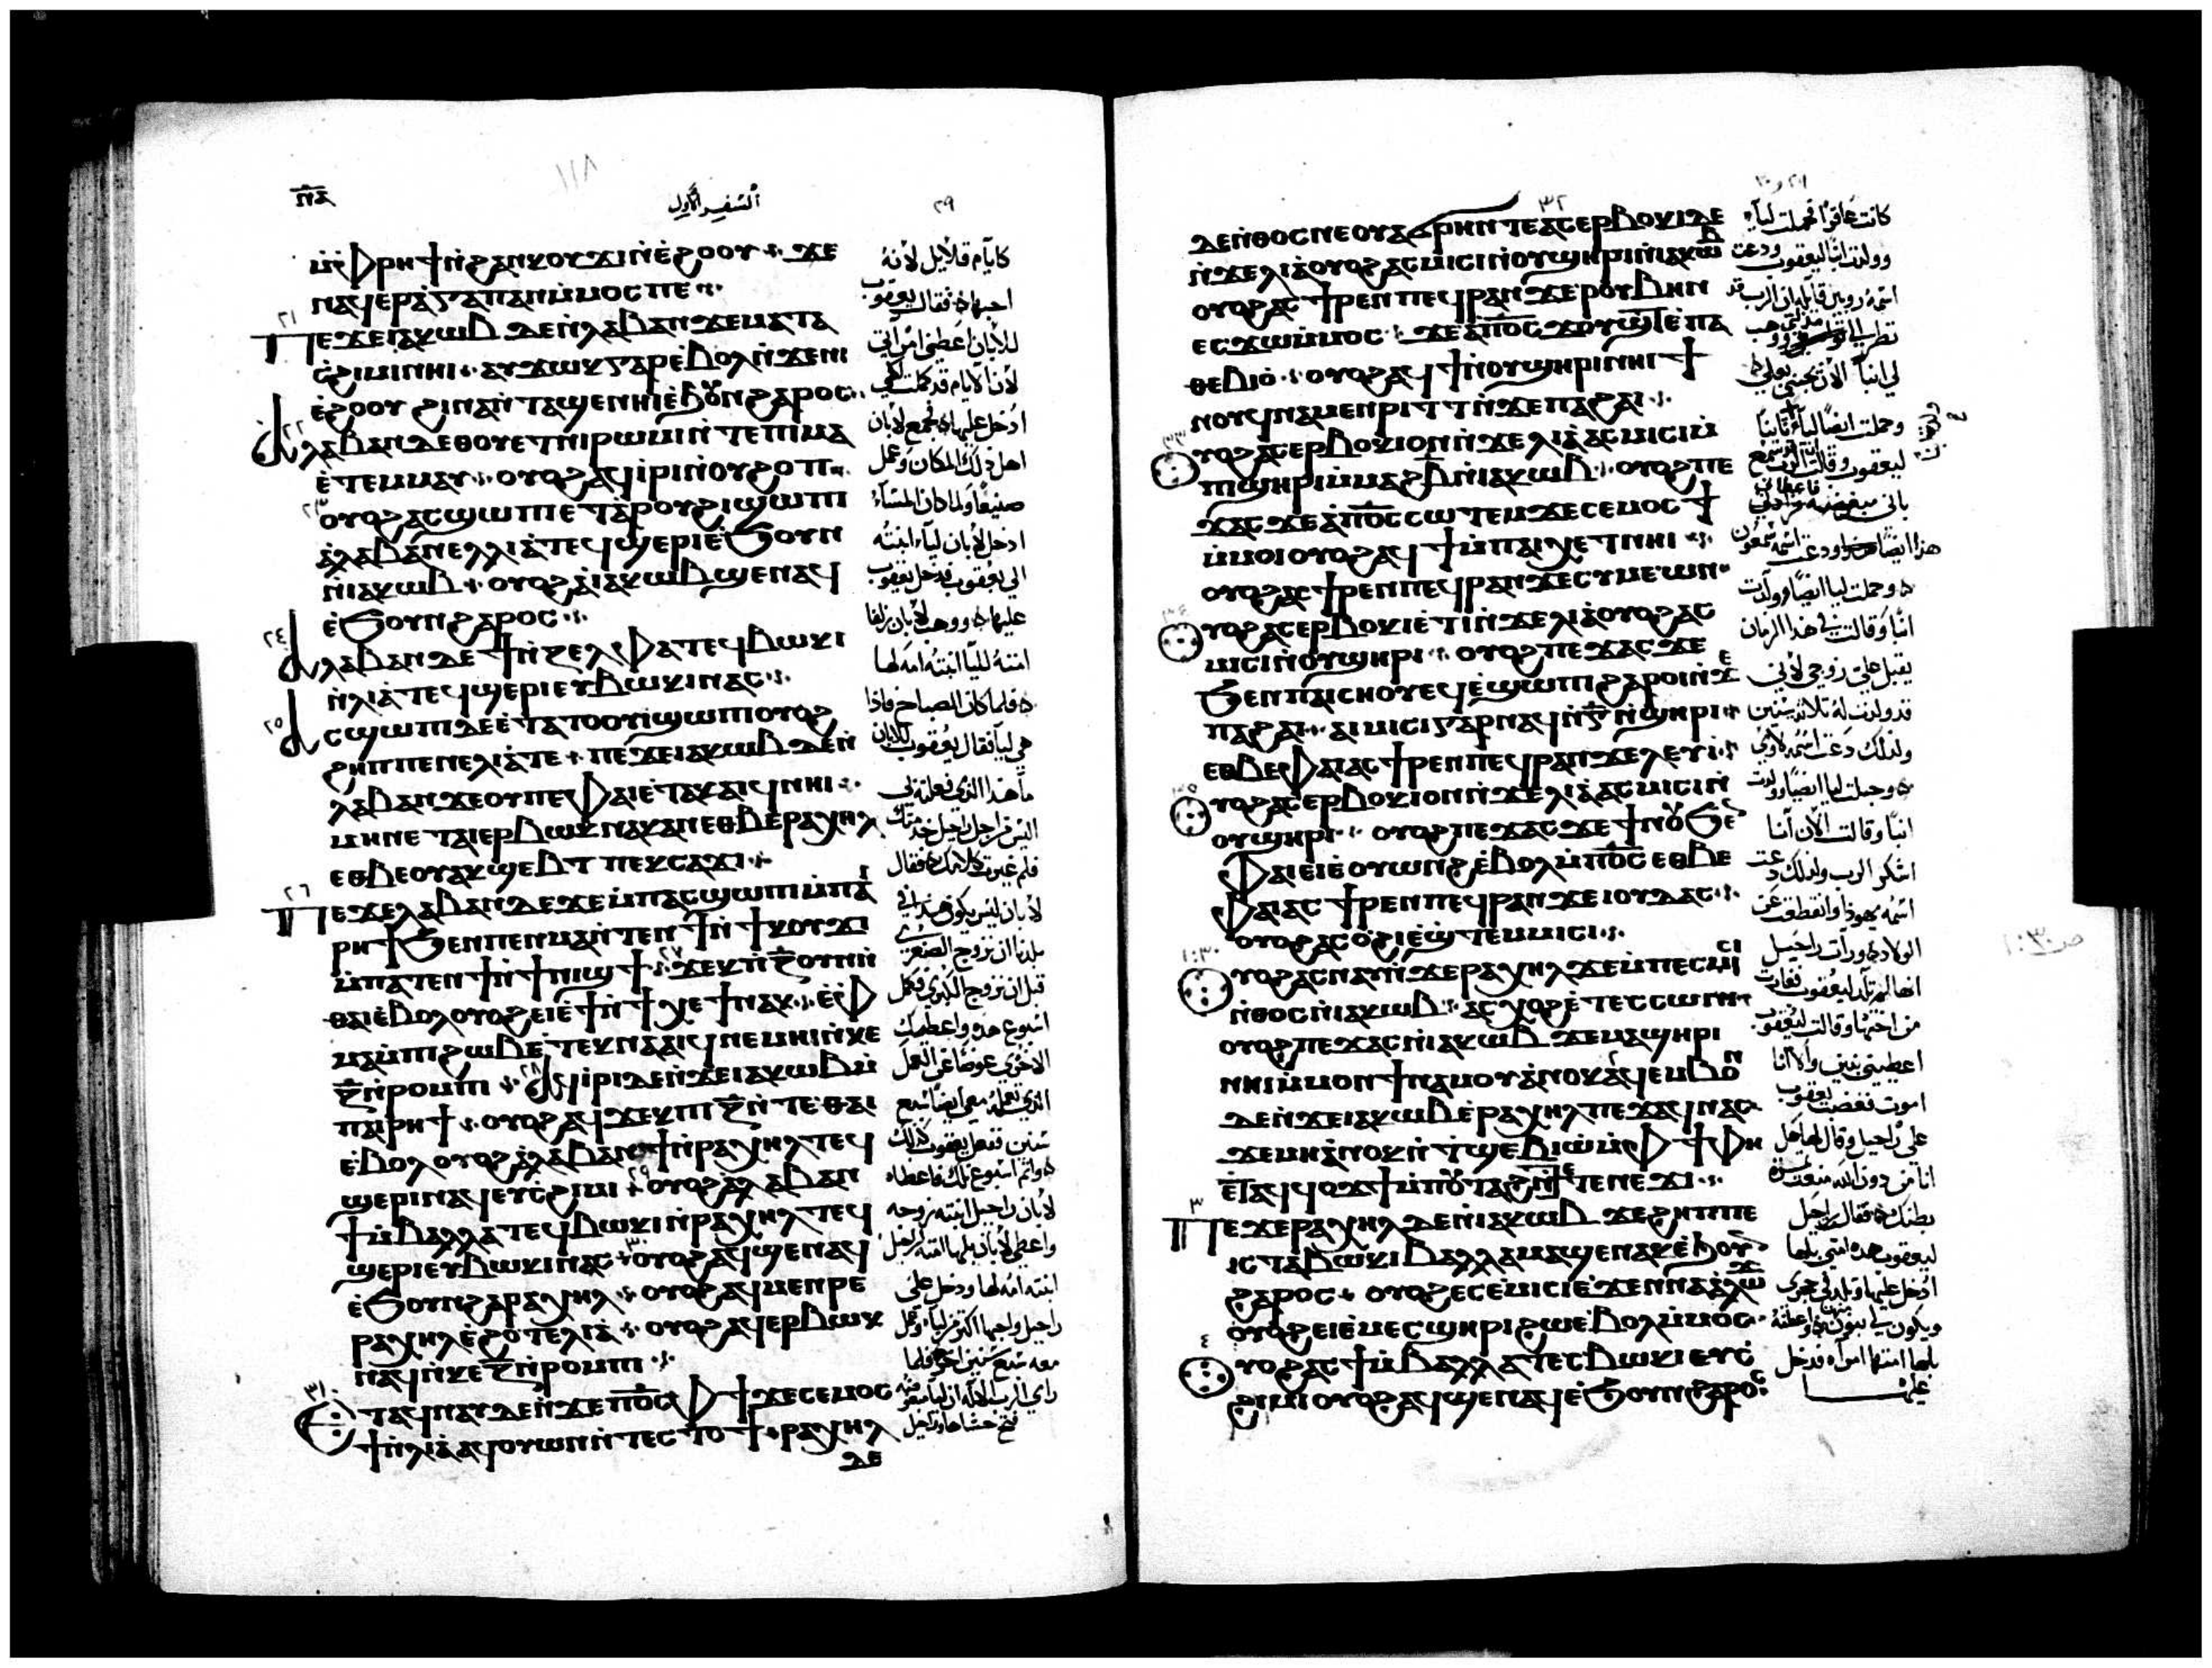 ⲛ̅ⲁ̅
١١٨
السفر الاول
٢٩
ⲙ̀ⲫⲣⲏϯ ⲛ̀ϩⲁⲛⲕⲟⲩϫⲓ ⲛ̀ⲉ̀ϩⲟⲟⲩ ϫⲉ
ⲛⲁϥⲉⲣⲁ̀ⲅⲁⲡⲁⲛ ⲙ̀ⲙⲟⲥ ⲡⲉ
٢١
ⲡⲉϫⲉ ⲓⲁⲕⲱⲃ ⲇⲉ ⲛ̀ⲗⲁⲃⲁⲛ ϫⲉ ⲙⲁ ⲧⲁ
ⲥ̀ϩⲓⲙⲓ ⲛⲏⲓ ⲁⲩϫⲱⲕ ⲅⲁⲣ ⲉ̀ⲃⲟⲗ ⲛ̀ϫⲉ ⲛⲓ
ⲉ̀ϩⲟⲟⲩ ϩⲓⲛⲁ ⲛ̀ⲧⲁϣⲉ ⲛⲏⲓ ⲉ̀ϧⲟⲩⲛ ϩⲁⲣⲟⲥ
٢٢
ⲁ ⲗⲁⲃⲁⲛ ⲇⲉ ⲑⲟⲩⲉⲧ ⲛⲓⲣⲱⲙⲓ ⲛ̀ⲧⲉ ⲡⲓⲙⲁ
ⲉ̀ⲧⲉⲙⲙⲁⲩ ⲟⲩⲟϩ ⲁϥⲓ̀ⲣⲓ ⲛ̀ⲟⲩϩⲟⲡ
٢٣
ⲟⲩⲟϩ ⲁⲥϣⲱⲡⲓ ⲉⲧⲁ ⲣⲟⲩϩⲓ ϣⲱⲡⲓ
ⲁ̀ ⲗⲁⲃⲁⲛ ⲉⲛ ⲗⲓⲁ̀ ⲧⲉϥϣⲉⲣⲓ ⲉ̀ϧⲟⲩⲛ
ⲛ̀ⲓⲁⲕⲱⲃ ⲟⲩⲟϩ ⲁ̀ ⲓⲁⲕⲱⲃ ϣⲉ ⲛⲁϥ
ⲉ̀ϧⲟⲩⲛ ϩⲁⲣⲟⲥ
٢٤
ⲁ ⲗⲁⲃⲁⲛ ⲇⲉ ϯ ⲛ̀ⲍⲉⲗⲫⲁ ⲧⲉϥⲃⲱⲕⲓ
ⲛ̀ⲗⲓⲁ̀ ⲧⲉϥϣⲉⲣⲓ ⲉⲩⲃⲱⲕⲓ ⲛⲁⲥ
٢٥
ⲁⲥϣⲱⲡⲓ ⲇⲉ ⲉ̀ⲧⲁ ⲧⲟⲟⲩⲓ̀ ϣⲱⲡⲓ ⲟⲩⲟϩ
ϩⲏⲡⲡⲉ ⲛⲉ ⲗⲓⲁ̀ ⲧⲉ ⲡⲉϫⲉ ⲓⲁⲕⲱⲃ ⲇⲉ ⲛ̀
ⲗⲁⲃⲁⲛ ϫⲉ ⲟⲩ ⲡⲉ ⲫⲁⲓ ⲉ̀ⲧⲁⲕⲁⲓϥ ⲛⲏⲓ
ⲙⲏ ⲛⲉⲧⲁⲓⲉⲣⲃⲱⲕ ⲛⲁⲕ ⲁⲛ ⲉⲑⲃⲉ ⲣⲁⲭⲏⲗ
ⲉⲑⲃⲉ ⲟⲩ ⲁⲕϣⲉⲃⲧ ⲡⲉⲕⲥⲁϫⲓ
٢٦
ⲡⲉϫⲉ ⲗⲁⲃⲁⲛ ⲇⲉ ϫⲉ ⲙ̀ⲡⲁⲥϣⲱⲡⲓ ⲙ̀ⲡⲁⲓ
ⲣⲏϯ ϧⲉⲛ ⲡⲉⲛⲙⲁ ⲛ̀ⲧⲉⲛϯ ⲛ̀ϯⲕⲟⲩϫⲓ
ⲙ̀ⲡⲁⲧⲉⲛϯ ⲛ̀ϯⲛⲓϣϯ ٢٧ ϫⲉⲕ ⲡ̀ⲍ̅ ⲟⲩⲛ ⲛ̀
ⲑⲁⲓ ⲉ̀ⲃⲟⲗ ⲟⲩⲟϩ ⲉⲓⲉ̀ϯ ⲛ̀ϯⲭⲉϯ ⲛⲁⲕ ⲉ̀ⲫ
ⲙⲁ ⲙ̀ⲡⲓϩⲱⲃ ⲉ̀ⲧⲉⲕⲛⲁⲁⲓϥ ⲛⲉⲙⲏⲓ ⲛ̀ⲕⲉ
ⲍ̅ ⲛ̀ⲣⲟⲙⲡⲓ ٢٨ ⲁϥⲓ̀ⲣⲓ ⲇⲉ ⲛ̀ϫⲉ ⲓⲁⲕⲱⲃ ⲙ̀
ⲡⲁⲓⲣⲏϯ ⲟⲩⲟϩ ⲁϥϫⲉⲕ ⲡⲓⲍ̅ ⲛ̀ⲧⲉ ⲑⲁⲓ
ⲉ̀ⲃⲟⲗ ⲟⲩⲟϩ ⲁ̀ ⲗⲁⲃⲁⲛ ϯ ⲛ̀ⲣⲁⲭⲏⲗ ⲧⲉϥ
ϣⲉⲣⲓ ⲛⲁϥ ⲉⲩⲥ̀ϩⲓⲙⲓ ٢٩ ⲟⲩⲟϩ ⲁ̀ ⲗⲁⲃⲁⲛ
ϯ ⲙ̀ⲃⲁⲗⲗⲁ ⲧⲉϥⲃⲱⲕⲓ ⲛ̀ⲣⲁⲭⲏⲗ ⲧⲉϥ
ϣⲉⲣⲓ ⲉⲩⲃⲱⲕⲓ ⲛⲁⲥ ٣٠ ⲟⲩⲟϩ ⲁϥϣⲉ ⲛⲁϥ
ⲉ̀ϧⲟⲩⲛ ϩⲁ ⲣⲁⲭⲏⲗ ⲟⲩⲟϩ ⲁϥⲙⲉⲛⲣⲉ
ⲣⲁⲭⲏⲗ ⲉ̀ϩⲟⲧⲉ ⲗⲓⲁ̀ ⲟⲩⲟϩ ⲁϥⲉⲣⲃⲱⲕ
ⲛⲁϥ ⲛ̀ⲕⲉ ⲍ̅ ⲛ̀ⲣⲟⲙⲡⲓ
٣١
ⲉⲧⲁϥⲛⲁⲩ ⲇⲉ ⲛ̀ϫⲉ ⲡ̅ⲟ̅ⲥ̅ ⲫϯ ϫⲉ ⲥⲉⲙⲟⲥ
ϯ ⲛ̀ⲗⲓⲁ̀ ⲁϥⲟⲩⲱⲛ ⲛ̀ⲧⲉⲥⲧⲟϯ ⲣⲁⲭⲏⲗ
ⲇⲉ
كايام قلايل لانه
احبها فقال يعقوب
للابان اعطني امراتي
لان الايام قد كملت لكي
ادخل عليها فجمع لابان
اهل ذلك المكان وعمل
صنيعا ولما كان المساء
ادخل لابان ليا ابنته
الي يعقوب فدخل يعقوب
عليها ووهب لابان زلفا
امته لليا ابنته امه لها
فلما كان الصباح فاذا
هي ليا فقال يعقوب للابان
ما هذا الذي فعلته بي
اليس من اجل راحيل خدمتك
فلم غيرت كلامك فقال
لابان ليس يكون هكذا في
بلدنا ان نزوج الصغري
قبل ان نزوج الكبري فكمل
اسبوع هذه واعطيك
الاخري عوضا عن العمل
الذي تعمله معي ايضا سبع
سنين ففعل يعقوب كذلك
واتم اسبوع تلك فاعطاه
لابان راحيل ابنته زوجه
واعطي لابان بلها امته لراحيل
ابنته امه لها ودخل علي
راحيل واحبها اكثر من ليا وعمل
معه سبع سنين اخر فلما
راي الرب الاله ان ليا مبغوضه
فتح حشاها وراحيل
٣٢
ⲇⲉ ⲛ̀ⲑⲟⲥ ⲛⲉ ⲟⲩⲁϭⲣⲏⲛ ⲧⲉ ⲁⲥⲉⲣⲃⲟⲕⲓ ⲇⲉ
ⲛ̀ϫⲉ ⲗⲓⲁ̀ ⲟⲩⲟϩ ⲁⲥⲙⲓⲥⲓ ⲛ̀ⲟⲩϣⲏⲣⲓ ⲛ̀ⲓⲁⲕⲱⲃ
ⲟⲩⲟϩ ⲁⲥϯⲣⲉⲛ ⲡⲉϥⲣⲁⲛ ϫⲉ ⲣⲟⲩⲃⲏⲛ
ⲉⲥϫⲱ ⲙ̀ⲙⲟⲥ ϫⲉ ⲁ̀ ⲡ̅ⲟ̅ⲥ̅ ϫⲟⲩϣⲧ ⲉ̀ⲡⲁ
ⲑⲉⲃⲓⲟ̀ ⲟⲩⲟϩ ⲁϥϯ ⲛ̀ⲟⲩϣⲏⲣⲓ ⲛⲏⲓ ϯ
ⲛⲟⲩ ϥⲛⲁⲙⲉⲛⲣⲓⲧⲧ ⲛ̀ϫⲉ ⲡⲁϩⲁⲓ
٣٣
ⲟⲩⲟϩ ⲁⲥⲉⲣⲃⲟⲕⲓ ⲟⲛ ⲛ̀ϫⲉ ⲗⲓⲁ̀ ⲁⲥⲙⲓⲥⲓ ⲙ̀
ⲡⲓϣⲏⲣⲓ ⲙ̀ⲙⲁϩⲃ̅ ⲛ̀ⲓⲁⲕⲱⲃ ⲟⲩⲟϩ ⲡⲉ
ϫⲁⲥ ϫⲉ ⲁ̀ ⲡ̅ⲟ̅ⲥ̅ ⲥⲱⲧⲉⲙ ϫⲉ ⲥⲉⲙⲟⲥϯ
ⲙ̀ⲙⲟⲓ ⲟⲩⲟϩ ⲁϥϯ ⲙ̀ⲡⲁⲓⲭⲉⲧ ⲛⲏⲓ
ⲟⲩⲟϩ ⲁⲥϯⲣⲉⲛ ⲡⲉϥⲣⲁⲛ ϫⲉ ⲥⲩⲙⲉⲱⲛ
٣٤
ⲟⲩⲟϩ ⲁⲥⲉⲣⲃⲟⲕⲓ ⲉ̀ⲧⲓ ⲛ̀ϫⲉ ⲗⲓⲁ̀ ⲟⲩⲟϩ ⲁⲥ
ⲙⲓⲥⲓ ⲛ̀ⲟⲩϣⲏⲣⲓ ⲟⲩⲟϩ ⲡⲉϫⲁⲥ ϫⲉ
ϧⲉⲛ ⲡⲁⲓⲥⲛⲟⲩ ⲉϥⲉ̀ϣⲱⲡⲓ ϩⲁⲣⲟⲓ ⲛ̀ϫⲉ
ⲡⲁϩⲁⲓ ⲁⲓⲙⲓⲥⲓ ⲅⲁⲣ ⲛⲁϥ ⲛ̀ⲅ̅ ⲛ̀ϣⲏⲣⲓ
ⲉⲑⲃⲉ ⲫⲁⲓ ⲁⲥϯⲣⲉⲛ ⲡⲉϥⲣⲁⲛ ϫⲉ ⲗⲉⲩⲓ̀
٣٥
ⲟⲩⲟϩ ⲁⲥⲉⲣⲃⲟⲕⲓ ⲟⲛ ⲛ̀ϫⲉ ⲗⲓⲁ̀ ⲁⲥⲙⲓⲥⲓ ⲛ̀
ⲟⲩϣⲏⲣⲓ ⲟⲩⲟϩ ⲡⲉϫⲁⲥ ϫⲉ ϯⲛⲟⲩ ϧⲉⲛ
ⲫⲁⲓ ⲉⲓⲉ̀ⲟⲩⲱⲛϩ ⲉ̀ⲃⲟⲗ ⲙ̀ⲡ̅ⲟ̅ⲥ̅ ⲉⲑⲃⲉ
ⲫⲁⲓ ⲁⲥϯⲣⲉⲛ ⲡⲉϥⲣⲁⲛ ϫⲉ ⲓⲟⲩⲇⲁⲥ
ⲟⲩⲟϩ ⲁⲥⲟ̀ϩⲓ ⲉ̀ϣⲧⲉⲙⲙⲓⲥⲓ
١:٣٠
ⲟⲩⲟϩ ⲁⲥⲛⲁⲩ ⲛ̀ϫⲉ ⲣⲁⲭⲏⲗ ϫⲉ ⲙ̀ⲡⲉⲥⲙⲓⲥⲓ
ⲛ̀ⲑⲟⲥ ⲛ̀ⲓⲁⲕⲱⲃ ⲁⲥⲭⲟϩ ⲉ̀ⲧⲉⲥⲥⲱⲛⲓ
ⲟⲩⲟϩ ⲡⲉϫⲁⲥ ⲛ̀ⲓⲁⲕⲱⲃ ϫⲉ ⲙⲁϣⲏⲣⲓ
ⲛⲏⲓ ⲙ̀ⲙⲟⲛ ϯⲛⲁⲙⲟⲩ ⲁ̀ⲛⲟⲕ ٢ ⲁϥⲉⲙⲃⲟⲛ
ⲇⲉ ⲛ̀ϫⲉ ⲓⲁⲕⲱⲃ ⲉ̀ⲣⲁⲭⲏⲗ ⲡⲉϫⲁϥ ⲛⲁⲥ
ϫⲉ ⲙⲏ ⲁ̀ⲛⲟⲕ ⲛ̀ⲧϣⲉⲃⲓⲱ̀ ⲙ̀ⲫϯ ⲫⲏ
ⲉ̀ⲧⲁϥϥⲟϫϯ ⲙ̀ⲡⲟⲩⲧⲁϩ ⲛ̀ⲧⲉ ⲧⲉⲛⲉϫⲓ
٣
ⲡⲉϫⲉ ⲣⲁⲭⲏⲗ ⲇⲉ ⲛ̀ⲓⲁⲕⲱⲃ ϫⲉ ϩⲏⲡⲡⲉ
ⲓⲥ ⲧⲁⲃⲱⲕⲓ ⲃⲁⲗⲗⲁ ⲙⲁϣⲉ ⲛⲁⲕ ⲉ̀ϧⲟⲩⲛ
ϩⲁⲣⲟⲥ ⲟⲩⲟϩ ⲉⲥⲉ̀ⲙⲓⲥⲓ ⲉ̀ϫⲉⲛ ⲛⲁⲁ̀ⲗⲱϫ
ⲟⲩⲟϩ ⲉⲓⲉ̀ⲙⲉⲥϣⲏⲣⲓ ϩⲱ ⲉ̀ⲃⲟⲗ ⲙ̀ⲙⲟⲥ
٤
ⲟⲩⲟϩ ⲁⲥϯ ⲙ̀ⲃⲁⲗⲗⲁ ⲧⲉⲥⲃⲱⲕⲓ ⲉⲩⲥ̀
ϩⲓⲙⲓ ⲟⲩⲟϩ ⲁϥϣⲉ ⲛⲁϥ ⲉ̀ϧⲟⲩⲛ ϩⲁⲣⲟⲥ
كانت عاقرا فحملت ليا
وولدت ابنا ليعقوب ودعت
اسمه روبين قايله ان الرب قد
نظر الي مذلتي ووهب
لي ابنا الان يحبني بعلي
وحملت ايضا ليا ثانيا
ليعقوب وقالت ان الرب سمع
باني مبغوضه فاعطاني
هذا ايضا ودعت اسمه شمعون
وحملت ليا ايضا وولدت
ابنا وقالت في هذا الزمان
يقبل علي زوجي لاني
قد ولدت له ثلاثة بنين
ولذلك دعت اسمه لاوي
وحبلت ليا ايضا وولدت
ابنا وقالت الان انا
اشكر الرب ولذلك دعت
اسمه يهوذا وانقطعت عن
الولاده ورات راحيل
انها لم تلد ليعقوب فغارت
من اختها وقالت ليعقوب
اعطيني بنين والا انا
اموت فغضب يعقوب
علي راحيل وقال لها هل
انا من دون الله منعت ثمرة
بطنك فقالت راحيل
ليعقوب هذه امتي بلها
ادخل عليها وتلد في حجري
ويكون لي بنون منها واعطته
بلها امتها امراه فدخل
عليها
ص ١:٣٠